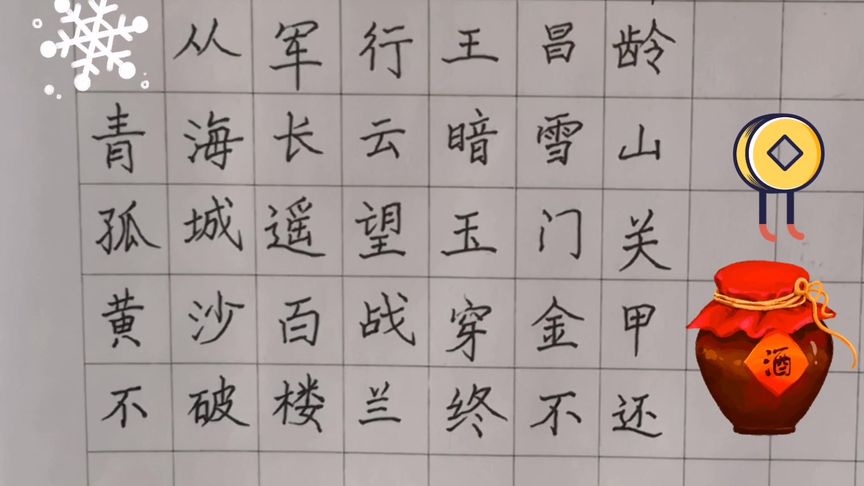 从军行王昌龄
青海长云暗雪山
孤城遥望玉门关
黄沙百战穿金甲
不破楼兰终不还
酒